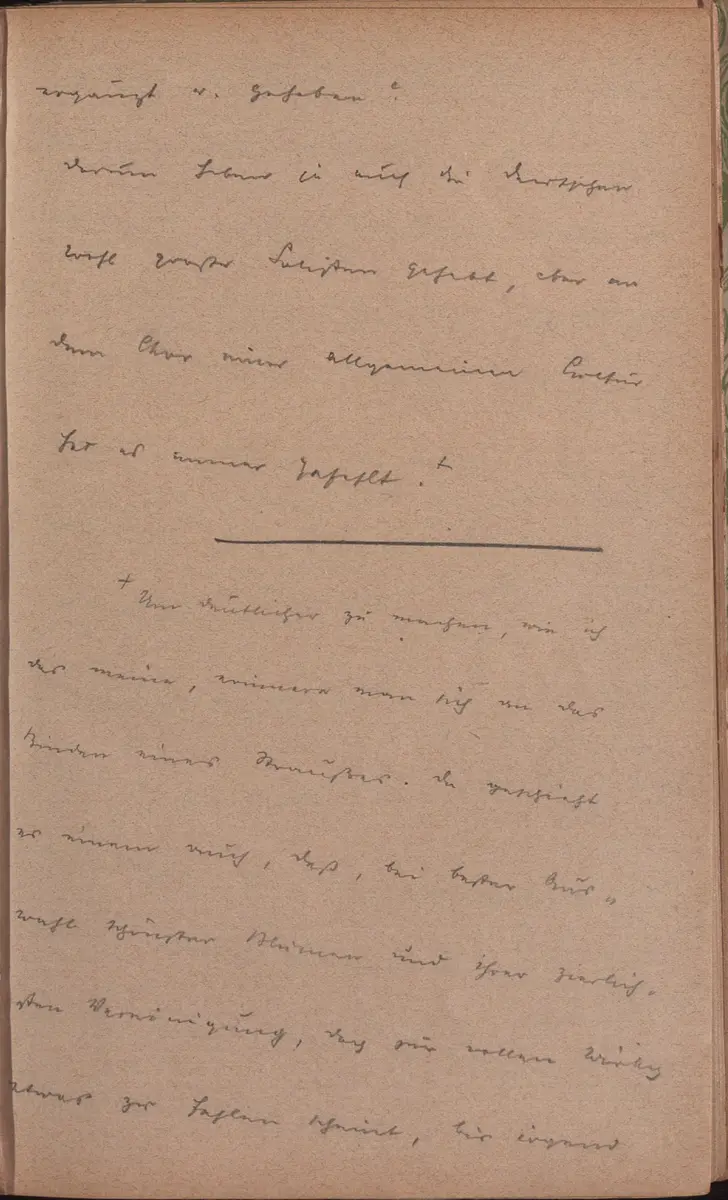 ergänzt u. gehoben?
Darum haben ja auch die Deutschen
wohl große Solisten gehabt, aber an
dem Chor einer allgemeinen Cultur
hat es immer gefehlt. +
+ Um deutlicher zu machen, wie ich
das meine, erinnere man sich an das
Binden eines Straußes. Da geschieht
es einem auch, daß, bei bester Aus„
wahl schönster Blumen und ihrer zierlich-
sten Vereinigung, doch zur vollen
etwas zu fehlen scheint, bis irgend